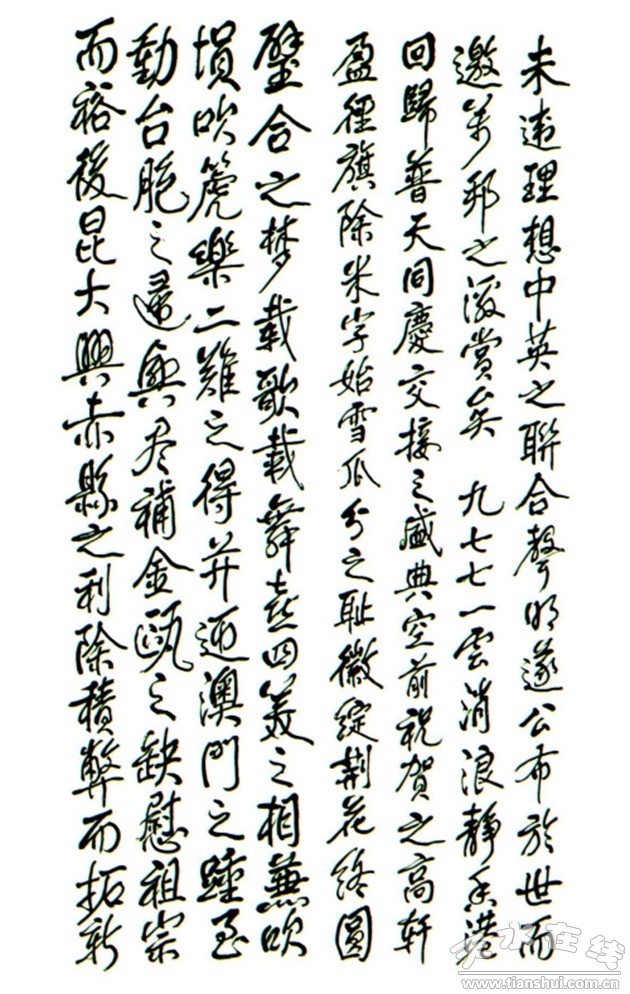 未违理想中英之聯合聲明遂公布於世而
邀萬邦之激賞矣 九七七一雲消浪靜香港
回歸普天同慶交接之盛典空前祝賀之高軒
盈徑旗除米字始雪瓜分之耻徽綻荆花終圓
璧合之梦载歌载舞喜四美之相兼吹
埙吹篪樂二難之得并迎澳門之踵至
動台胞之遄興尽補金瓯之缺慰祖宗
而裕後昆大興赤縣之利除積弊而拓新
天水在线
www.tianshui.com.cn